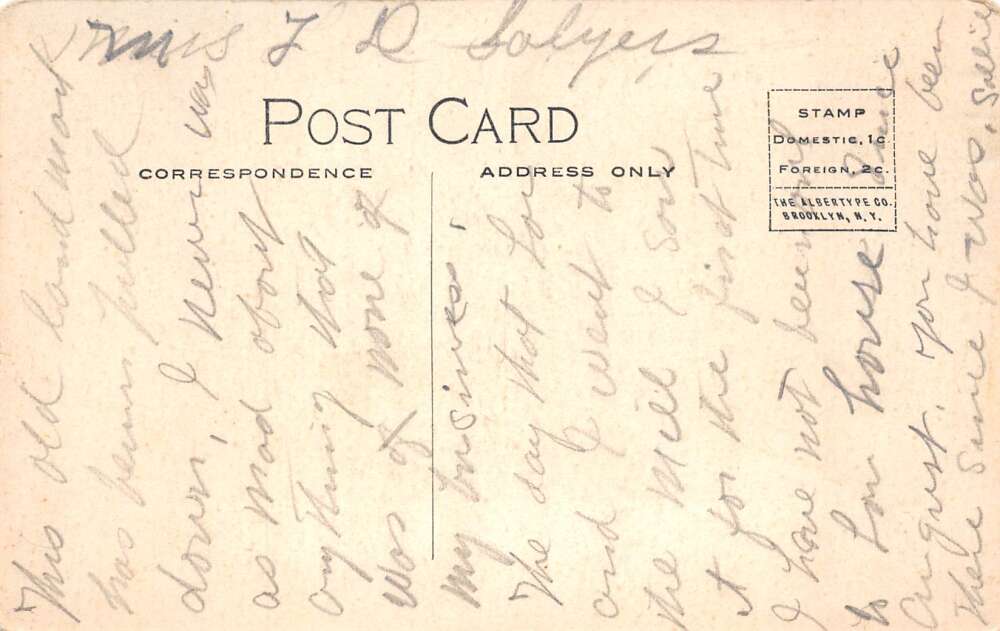 Mrs L D Salyers
POST CARD
CORRESPONDENCE
ADDRESS ONLY
STAMP
DOMESTIC, 1c
FOREIGN, 2c.
THE ALBERTYPE CO.
BROOKLYN, N. Y.
This old land mark
has been pulled
down, I never was
as mad about
any thing that
was of none of
my business.
The day that Lou
and I went to
the Mill I saw
it for the first time
I have not been out
to Lou house since
August. You have been
there since I was, Sallie